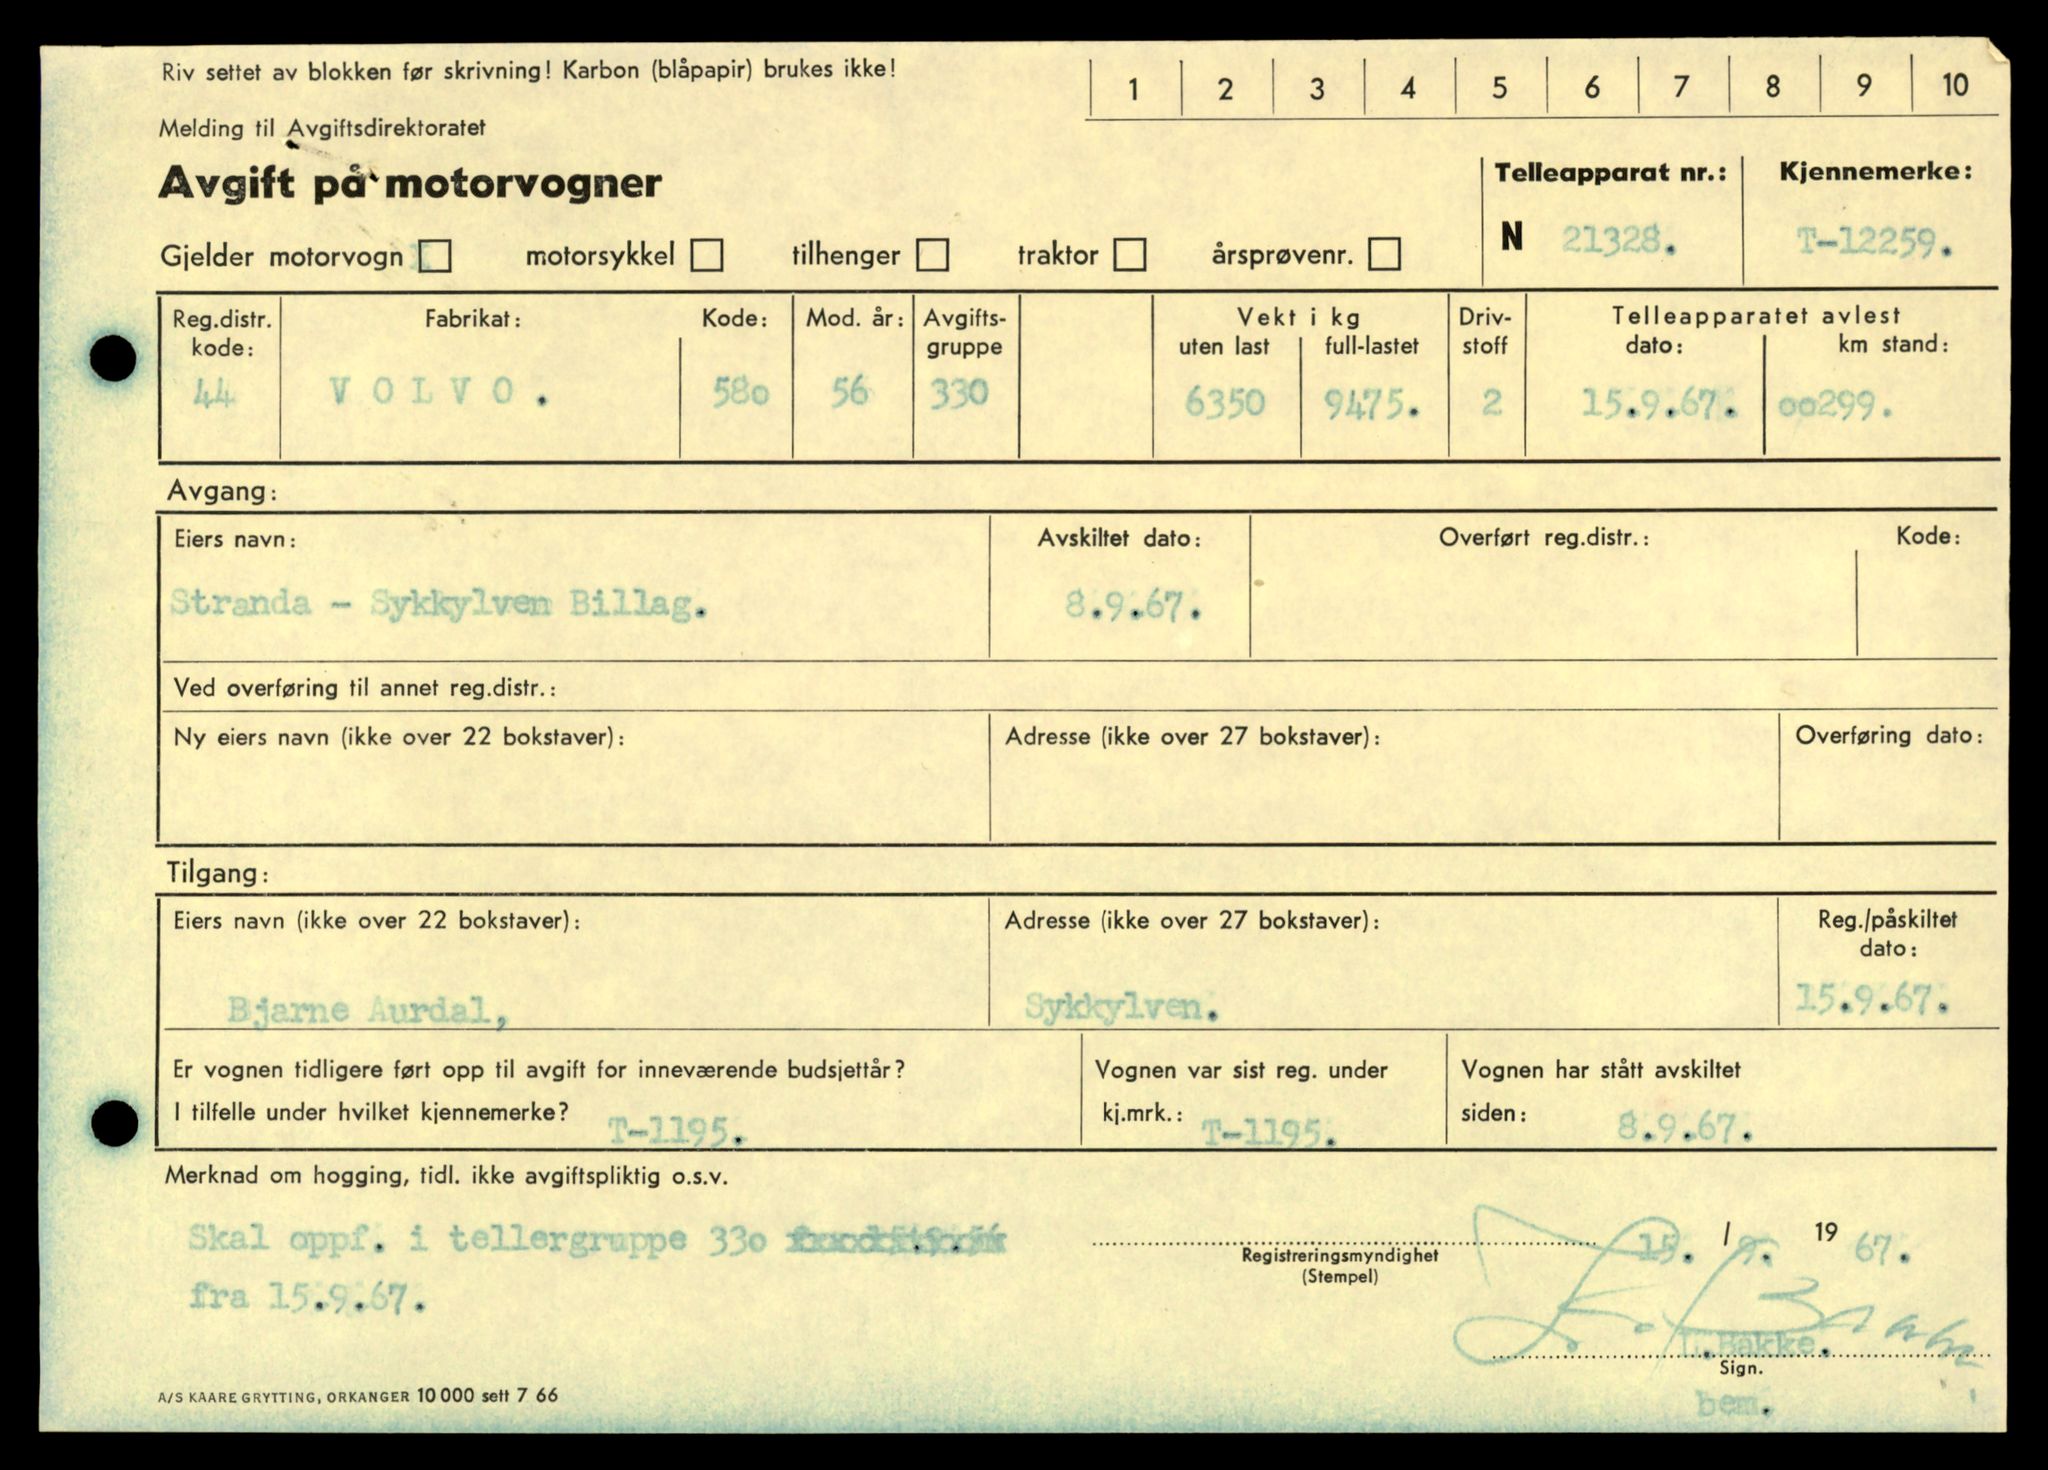 Riv settet av blokken før skrivning! Karbon (blåpapir) brukes ikke!
1 2 3 4 5 6 7 8 9 10
Melding til Avgiftsdirektoratet
Avgift på motorvogner
Telleapparat nr.: Kjennemerke:
N 21328. T-12259.
Gjelder motorvogn motorsykkel tilhenger traktor årsprøvenr.
Reg.distr. kode: Fabrikat: Kode: Mod. år: Avgifts-gruppe Vekt i kg Driv-stoff Telleapparatet avlest
uten last full-lastet dato: km stand:
44 VOLVO. 580 56 330 6350 9475. 2 15.9.67. oo299.
Avgang:
Eiers navn: Avskiltet dato: Overført reg.distr.: Kode:
Stranda - Sykkylven Billag. 8.9.67.
Ved overføring til annet reg.distr.:
Ny eiers navn (ikke over 22 bokstaver): Adresse (ikke over 27 bokstaver): Overføring dato:
Tilgang:
Eiers navn (ikke over 22 bokstaver): Adresse (ikke over 27 bokstaver): Reg./påskiltet
dato:
Bjarne Aurdal, Sykkylven. 15.9.67.
Er vognen tidligere ført opp til avgift for inneværende budsjettår? Vognen var sist reg. under Vognen har stått avskiltet
I tilfelle under hvilket kjennemerke? T-1195. kj.mrk.: T-1195. siden: 8.9.67.
Merknad om hogging, tidl. ikke avgiftspliktig o.s.v.
Skal oppf. i tellergruppe 33o
fra 15.9.67.
15. / 9. 19 67.
Registreringsmyndighet
(Stempel)
Bakke.
Sign.
bem.
A/S KAARE GRYTTING, ORKANGER 10 000 sett 7 66